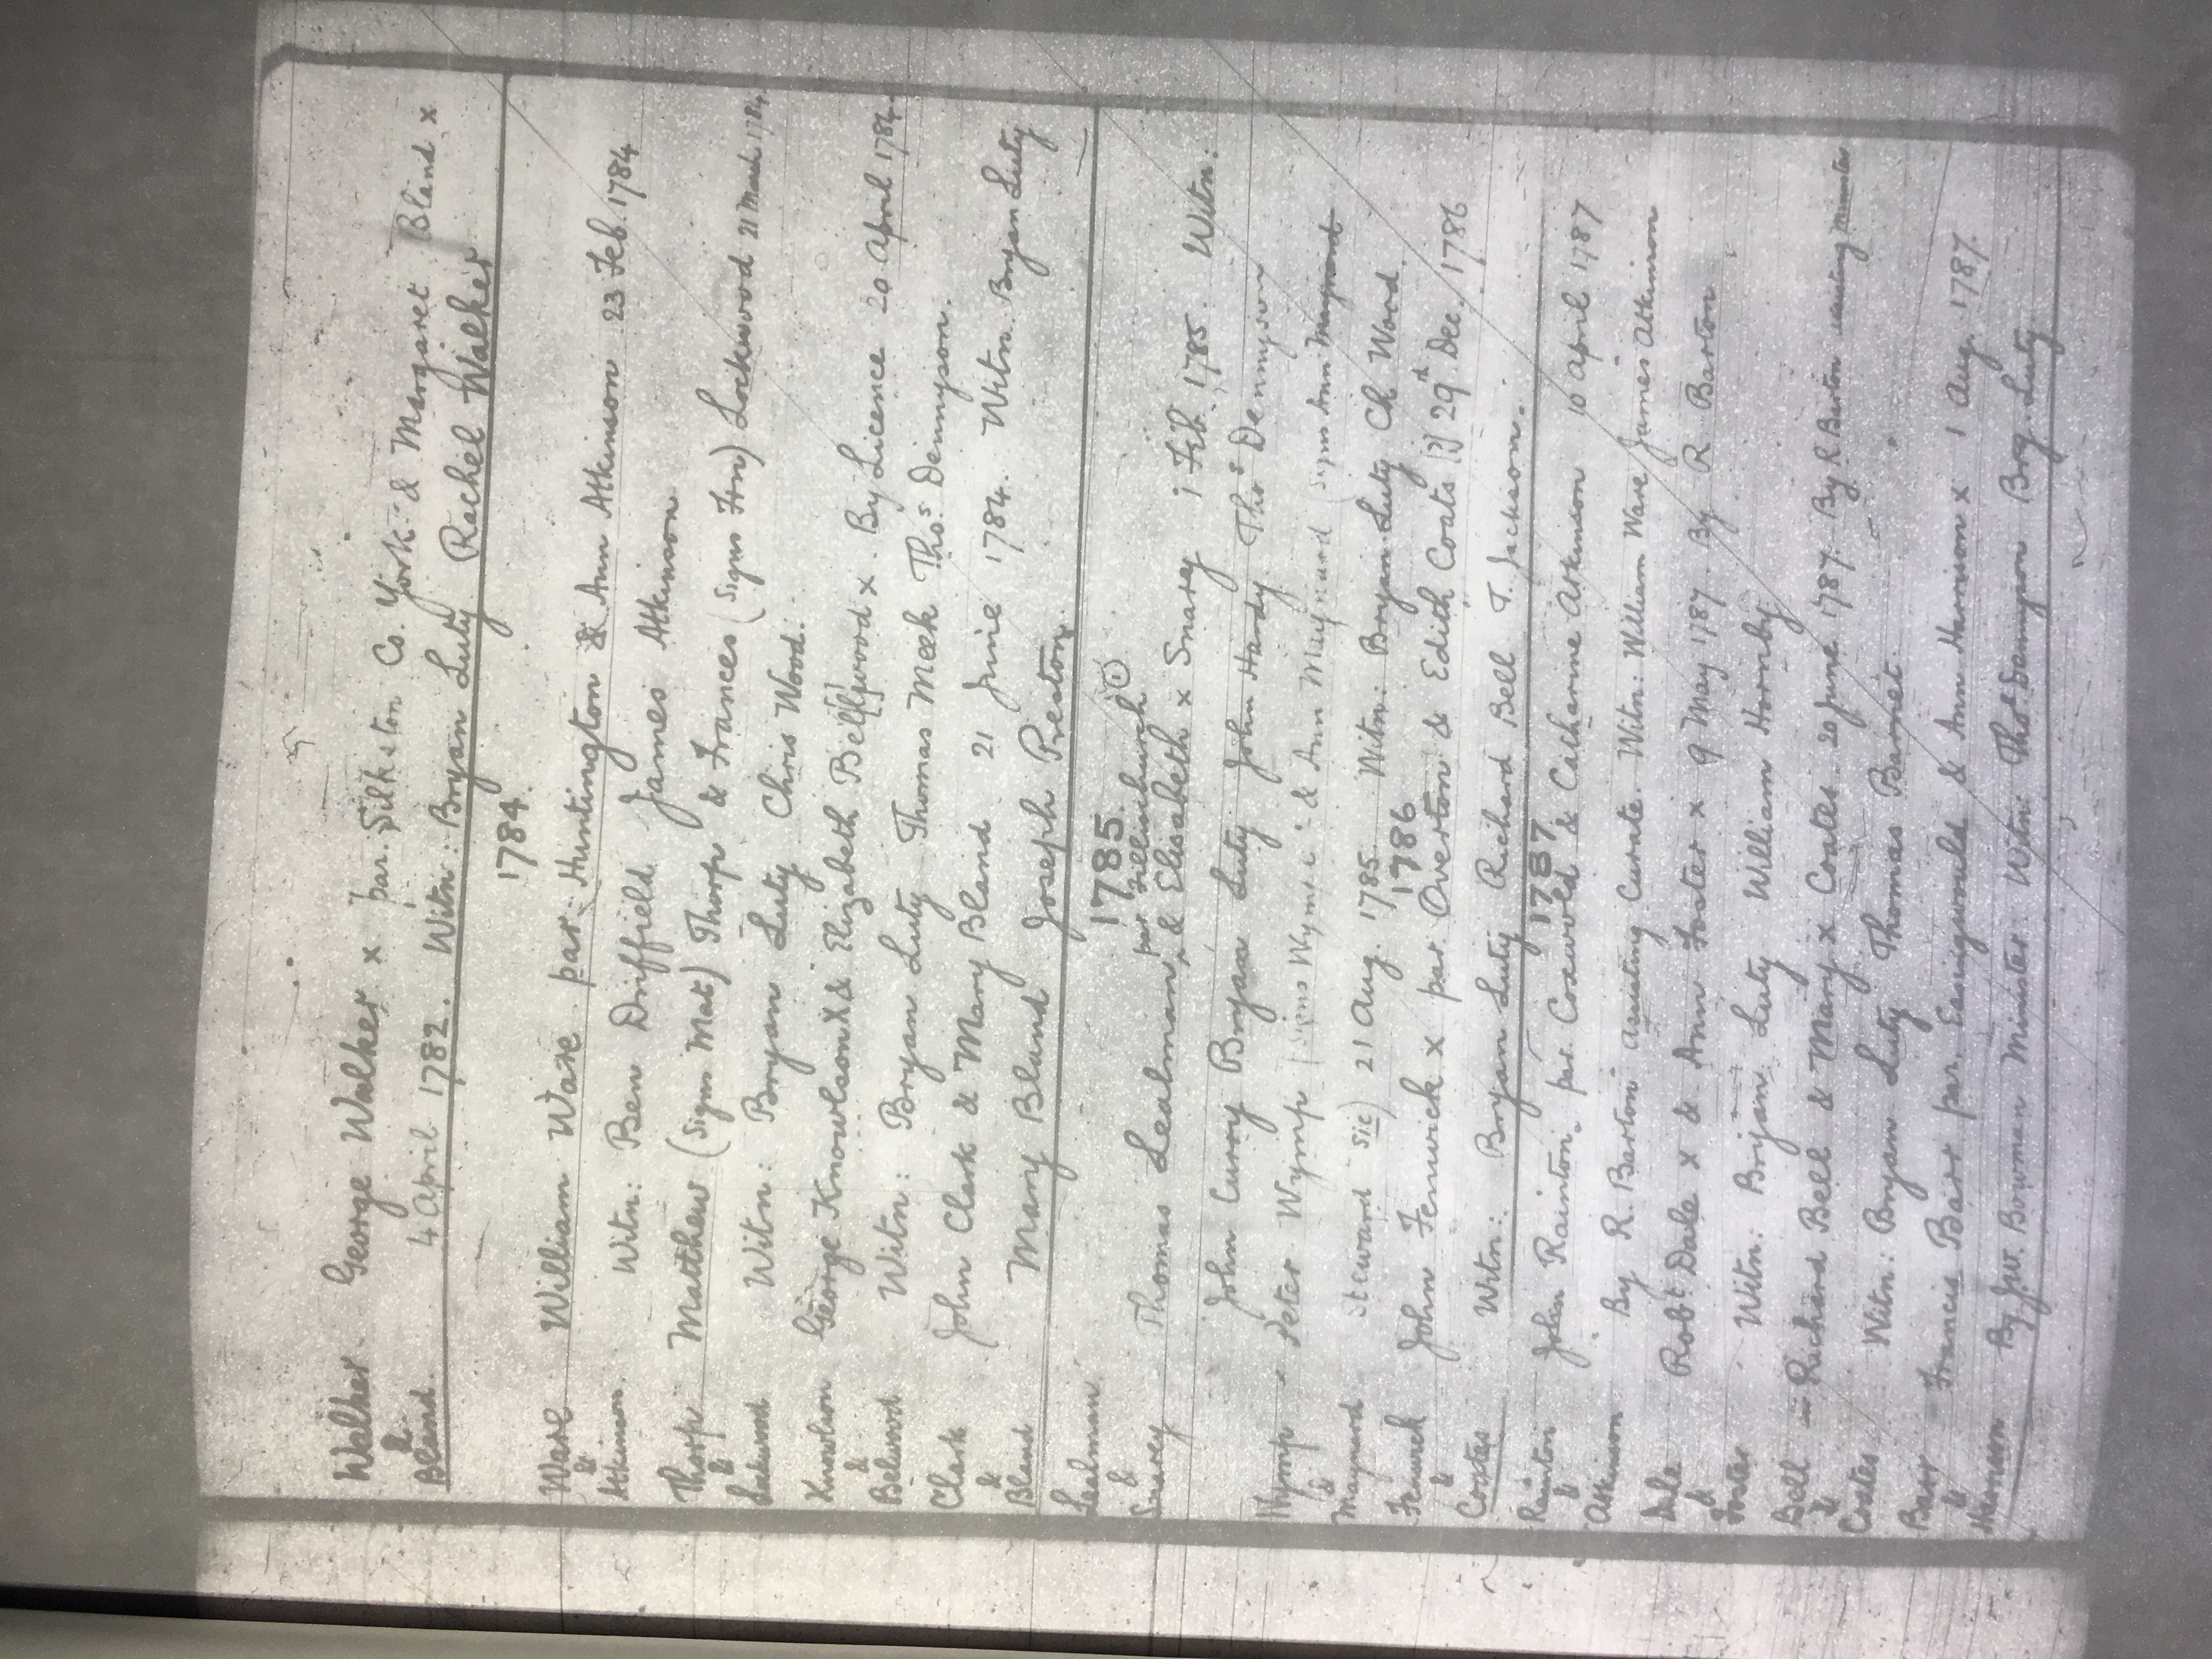 Walker George Walker x par. Silkston Co. York & Margaret Bland x
&
Bland. 4 April 1782. Witn: Bryan Luty Rachel Walker
1784.
Ware William Ware par: Huntington & Ann Atkinson 23 Feb. 1784
&
Atkinson. Witn: Ben Driffield James Atkinson
Thorp Matthew (Signs Mat) Thorp & Frances (Signs Frn) Lockwood 21 March 1784.
&
Witn: Bryan Luty Chris Wood.
Knowlson George Knowlson X & Elizabeth Bell[s]wood x By Licence 20 April 1784
&
Belwood Witn: Bryan Luty Thomas Meek Thos. Dennyson.
Clark John Clark & Mary Bland 21 June 1784. Witn. Bryan Luty
&
Bland Mary Bland Joseph Preston
1785.
Lealman par
Thomas Lealman & Elisabeth x Snarey 1 Feb. 1785. Witn:
&
Snarey John Curroy Bryan Luty John Hardy Thos Dennyson
Wymp Peter Wymp (signs Wympe: & Ann Maynard signs Ann Maynard
&
Maynard Steward sic) 21 Aug. 1785 Witn: Bryan Luty Ch Wood.
1786
Fenwick John Fenwick x par. Overton & Edith Coats [?] 29th Dec. 1786
&
Coates Witn: Bryan Luty Richard Bell T. Jackson.
1787
Rainton John Rainton. par. Coxwold & Catharine Atkinson 10 April 1787
&
Atkinson By R. Barton assisting Curate. Witn: William Ware James Atkinson
Dale Robt Dale x & Ann Foster x 9 May 1787 By R Barton
&
Foster Witn: Bryan Luty William Hornby
Bell Richard Bell & Mary x Coates. 20 June 1787. By R Barton assisting Minister
&
Coates Witn: Bryan Luty Thomas Barnet.
Barr Francis Barr par. Easingwould & Ann Harrison x 1 Aug. 1787.
&
Harrison By Jno. Bowman Minister. Witn: Thos. Dannyson Bry. Luty